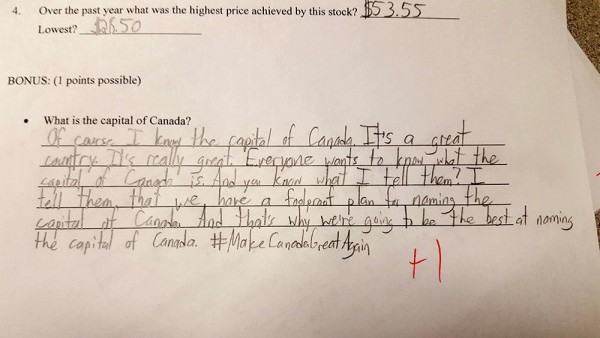 4. Over the past year what was the highest price achieved by this stock? $53.55
Lowest? $28.50
BONUS: (1 points possible)
• What is the capital of Canada?
Of course I know the capital of Canada. It's a great
country. It's really great. Everyone wants to know what the
capital of Canada is. And you know what I tell them? I
tell them that we have a foolproof plan for naming the
capital of Canada. And that's why we're going to be the best at naming
the capital of Canada. #MakeCanadaGreatAgain
+1